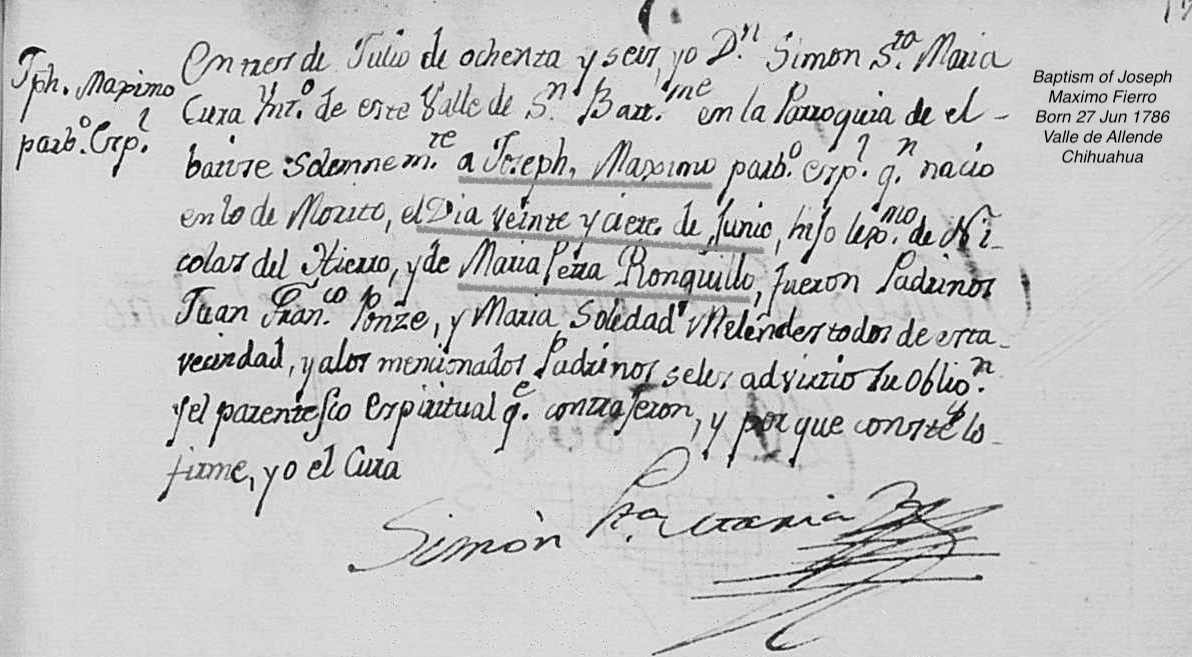 Jph. Maximo
parbº. Espl.
En tres de Julio de ochenta y seis, yo Dn. Simon Sta. Maria
Cura Yntº. de este Valle de Sn. Bartme. en la Parroquia de el
batise solemnemte. a Joseph, Maximo parbº. espl. qn. nacio
en lo de Morito, el Dia veinte y ciete de Junio, hijo lexmo. de Ni-
colas del Hierro, y de Maria Petra Ronquillo, fueron Padrinos
Juan Franco. Ponze, y Maria Soledad Melendes todos de esta
vecindad, y a los mencionados Padrinos seles advirtio su oblion.
y el parentesco espiritual qe. contrajeron, y por que conste lo
firme, yo el Cura
Simòn Sta. Maria
Baptism of Joseph
Maximo Fierro
Born 27 Jun 1786
Valle de Allende
Chihuahua